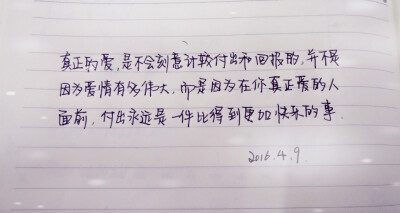 真正的爱,是不会刻意计较付出和回报的,并不是
因为爱情有多伟大,而是因为在你真正爱的人
面前,付出永远是一件比得到更加快乐的事.
2016.4.9.